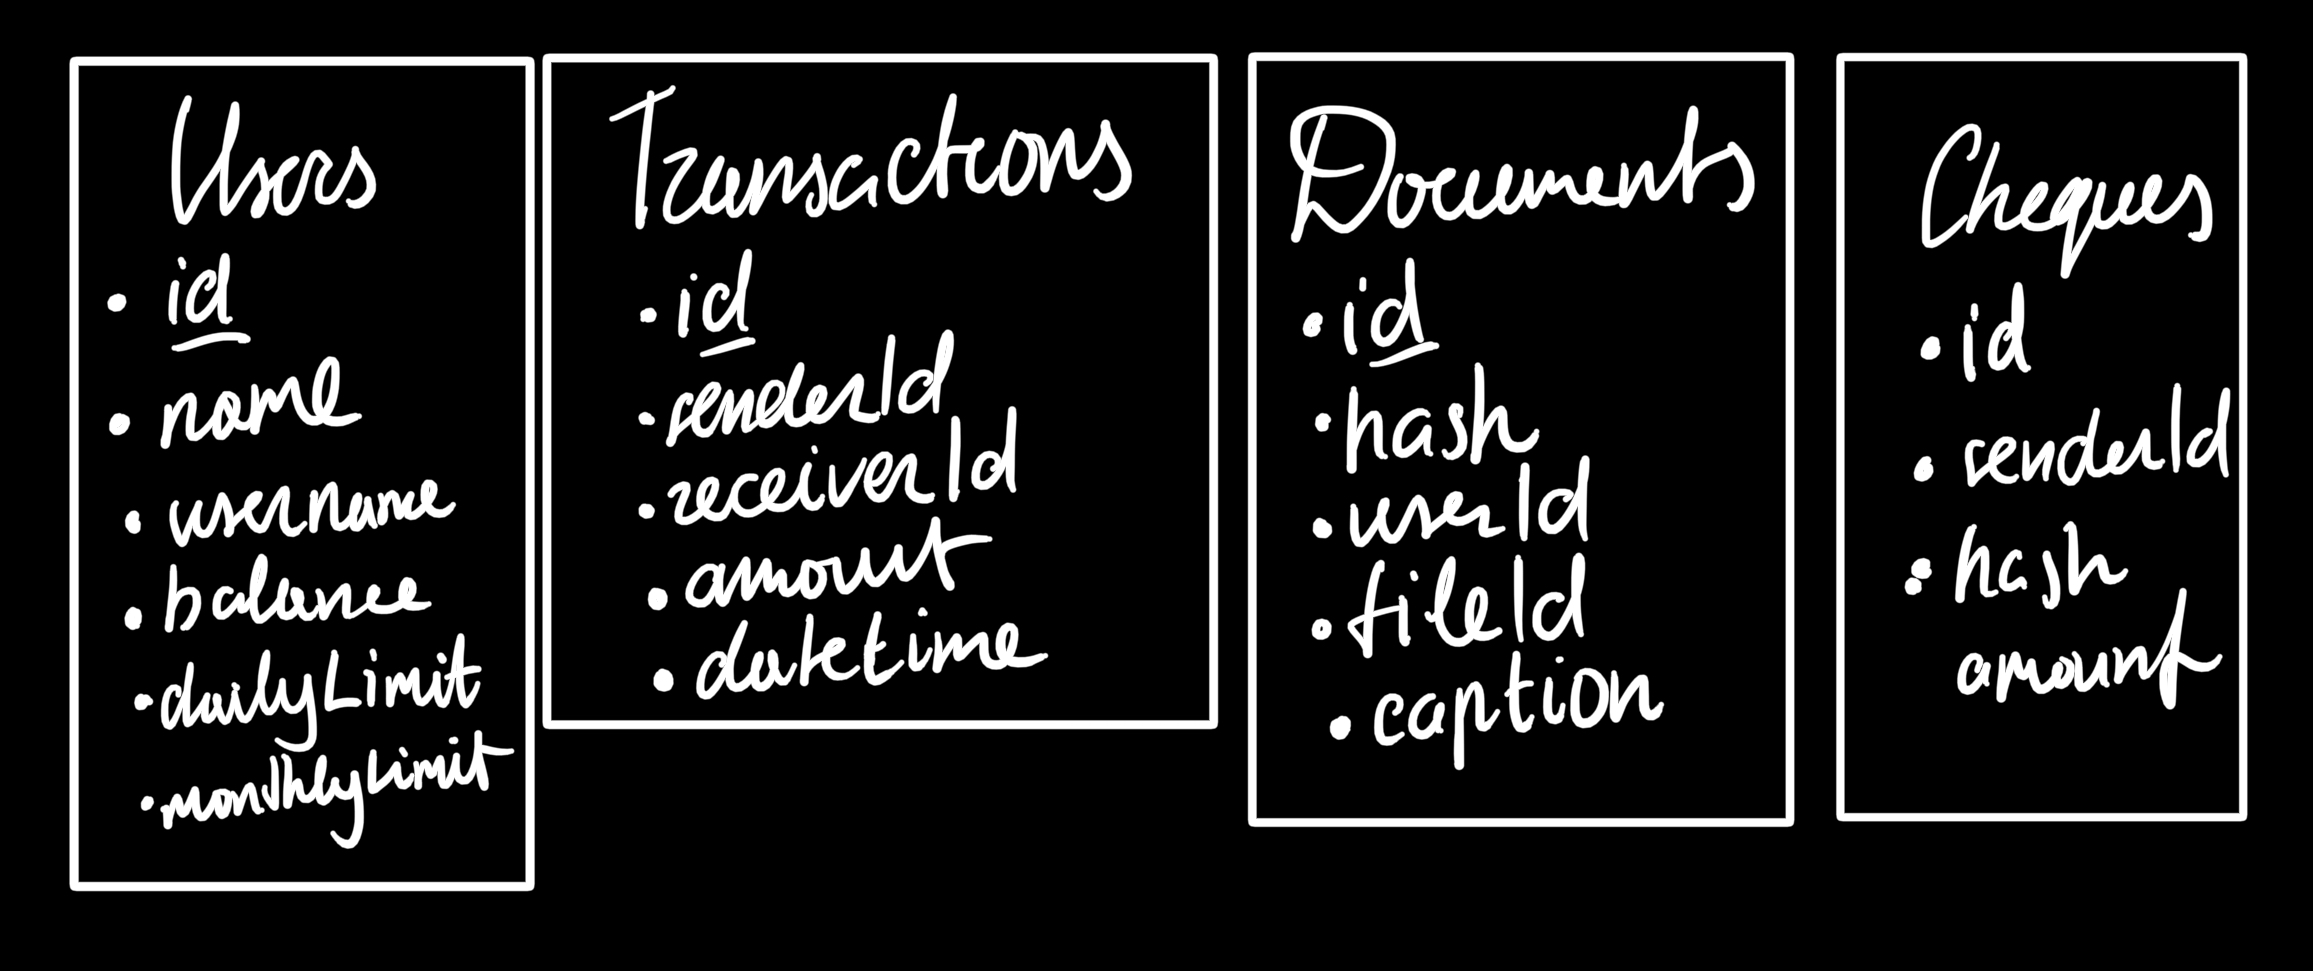 Users
• id
• name
• username
• balance
• dailyLimit
• monthlyLimit
Transactions
• id
• senderId
• receiverId
• amount
• datetime
Documents
• id
• hash
• userId
• fileId
• caption
Cheques
• id
• senderId
• hash
amount